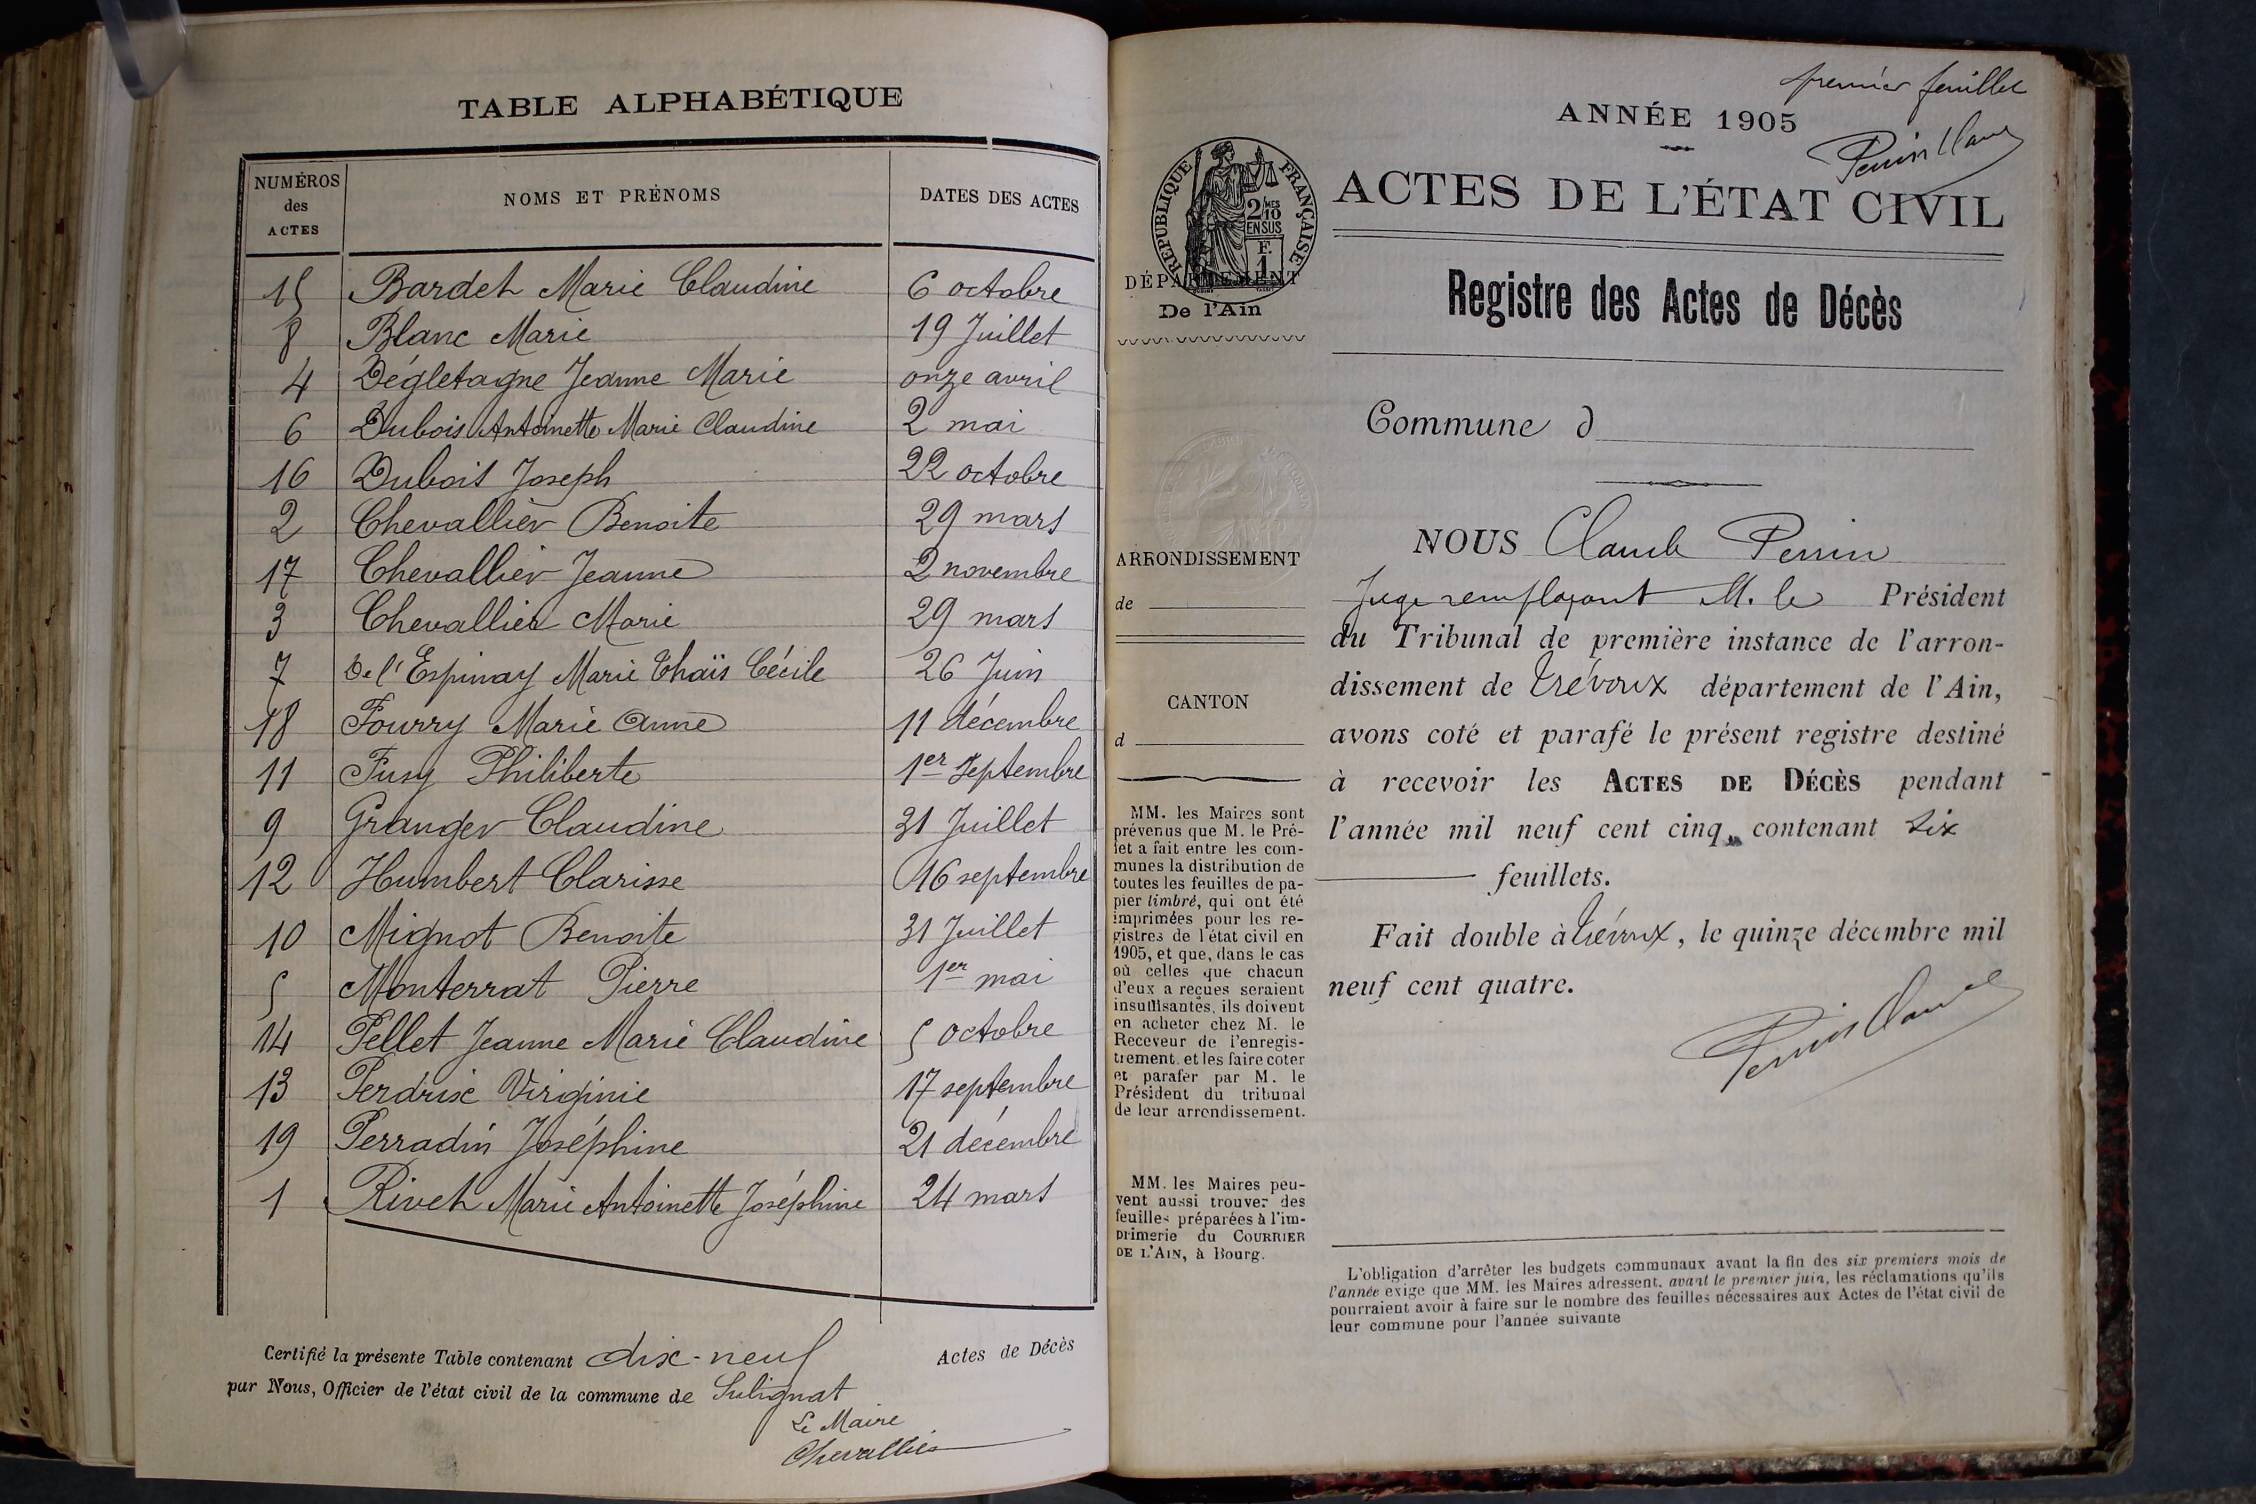 TABLE ALPHABÉTIQUE
NUMÉROS des ACTES
NOMS ET PRÉNOMS
DATES DES ACTES
15 Bardet Marie Claudine 6 octobre
8 Blanc Marie 19 Juillet
4 Dégletagne Jeanne Marie onze avril
6 Dubois Antoinette Marie Claudine 2 mai
16 Dubois Joseph 22 octobre
2 Chevallier Benoite 29 mars
17 Chevallier Jeanne 2 novembre
3 Chevallier Marie 29 mars
7 De l'Espinay Marie Thaïs Cécile 26 Juin
18 Fourry Marie Anne 11 décembre
11 Fusy Philiberte 1er Septembre
9 Granger Claudine 31 Juillet
12 Humbert Clarisse 16 septembre
10 Mignot Benoite 31 Juillet
5 Monterrat Pierre 1er mai
14 Pellet Jeanne Marie Claudine 5 octobre
13 Perdrix Virginie 17 septembre
19 Perradin Joséphine 21 décembre
1 Rivet Marie Antoinette Joséphine 24 mars
Certifié la présente Table contenant dix-neuf Actes de Décès
par Nous, Officier de l'état civil de la commune de Sulignat
Le Maire
Chevallier
premier feuillet
ANNÉE 1905
Perrin Claude
ACTES DE L'ÉTAT CIVIL
RÉPUBLIQUE FRANÇAISE
2/10MES
EN SUS
F.
1
DÉPARTEMENT
De l'Ain
Registre des Actes de Décès
Commune d
ARRONDISSEMENT
de
CANTON
d
MM. les Maires sont
prévenus que M. le Pré-
fet a fait entre les com-
munes la distribution de
toutes les feuilles de pa-
pier timbré, qui ont été
imprimées pour les re-
gistres de l'état civil en
1905, et que, dans le cas
où celles que chacun
d'eux a reçues seraient
insuffisantes, ils doivent
en acheter chez M. le
Receveur de l'enregis-
trement et les faire coter
et parafer par M. le
Président du tribunal
de leur arrondissement.
MM. les Maires peu-
vent aussi trouver des
feuilles préparées à l'im-
primerie du COURRIER
DE L'AIN, à Bourg.
NOUS Claude Perrin
Juge remplaçant M. le Président
du Tribunal de première instance de l'arron-
dissement de Trévoux département de l'Ain,
avons coté et parafé le présent registre destiné
à recevoir les ACTES DE DÉCÈS pendant
l'année mil neuf cent cinq, contenant six
feuillets.
Fait double à Trévoux, le quinze décembre mil
neuf cent quatre.
Perrin Claude
L'obligation d'arrêter les budgets communaux avant la fin des six premiers mois de
l'année exige que MM. les Maires adressent, avant le premier juin, les réclamations qu'ils
pourraient avoir à faire sur le nombre des feuilles nécessaires aux Actes de l'état civil de
leur commune pour l'année suivante